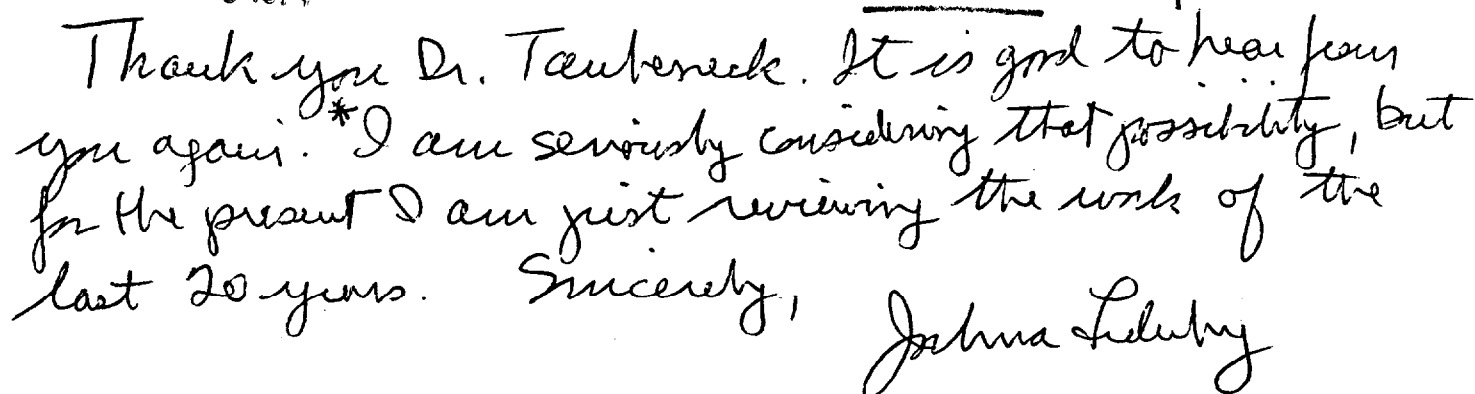 Thank you Dr. Taubeneck. It is good to hear from
you again. *I am seriously considering that possibility, but
for the present I am just reviewing the work of the
last 20 years. Sincerely,
Joshua Lederberg